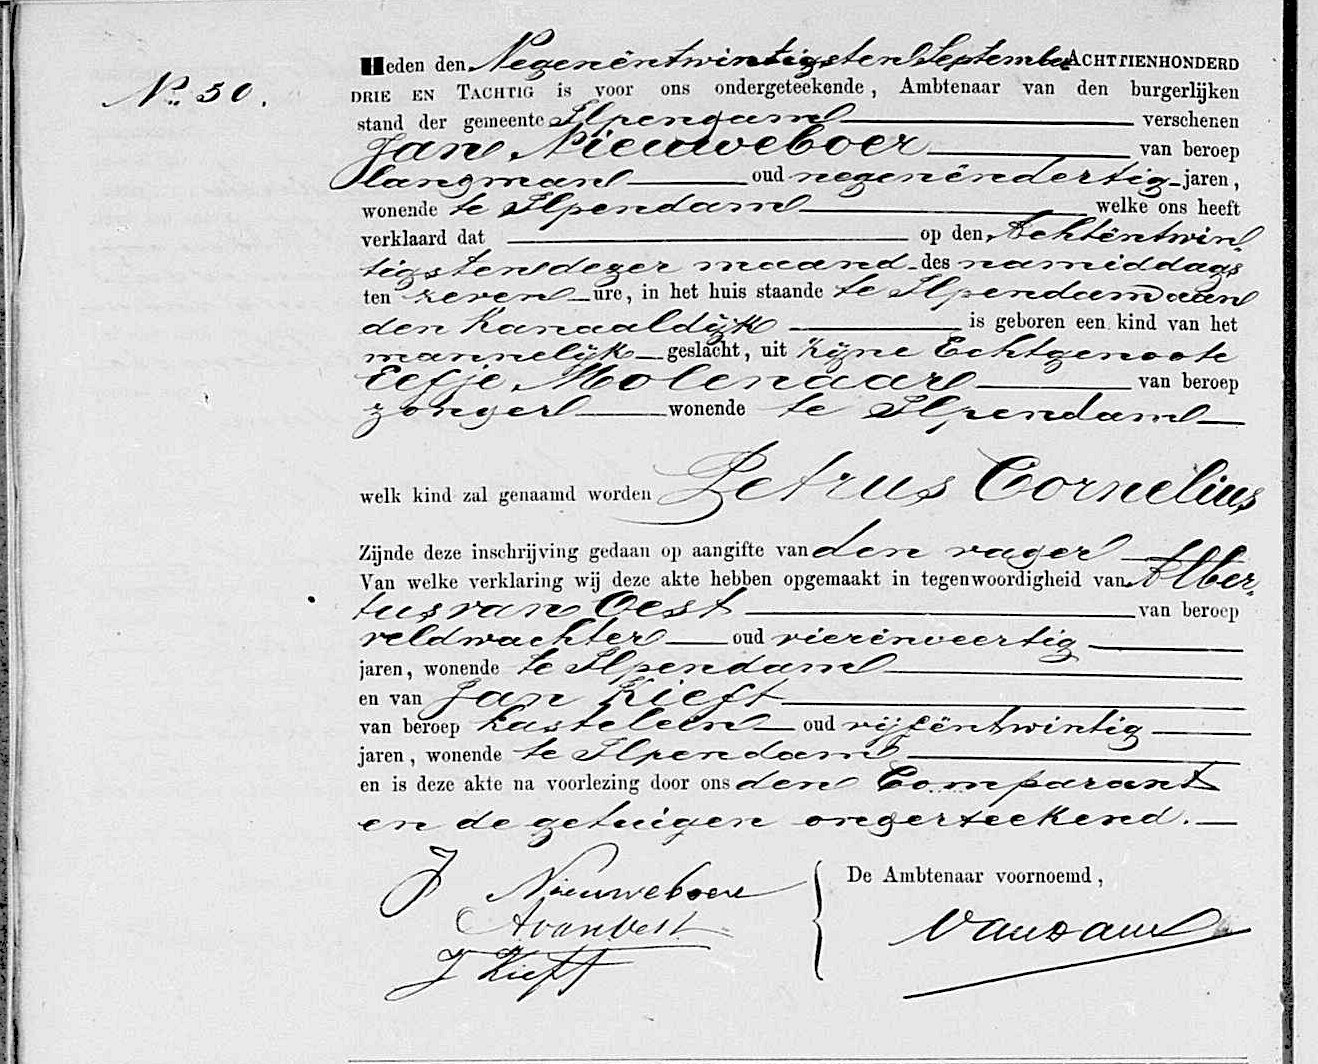 No. 50.
Heden den Negenëntwintigsten September ACHTTIENHONDERD
DRIE EN TACHTIG is voor ons ondergeteekende, Ambtenaar van den burgerlijken
stand der gemeente Ilpendam verschenen
Jan Nieuweboer van beroep
landman oud negenëndertig jaren,
wonende te Ilpendam welke ons heeft
verklaard dat op den Achtëntwin-
tigsten dezer maand des namiddags
ten zeven ure, in het huis staande te Ilpendam aan
den Kanaaldijk is geboren een kind van het
mannelijk geslacht, uit zijne Echtgenoote
Eefje Molenaar van beroep
zonder wonende te Ilpendam
welk kind zal genaamd worden Petrus Cornelius
Zijnde deze inschrijving gedaan op aangifte van den vader
Van welke verklaring wij deze akte hebben opgemaakt in tegenwoordigheid van Alber-
tus van Oest van beroep
veldwachter oud vierënveertig
jaren, wonende te Ilpendam
en van Jan Kieft
van beroep kastelein oud vijfëntwintig
jaren, wonende te Ilpendam
en is deze akte na voorlezing door ons den Comparant
en de getuigen onderteekend.
J Nieuweboer
De Ambtenaar voornoemd,
A van Oest
J Kieft